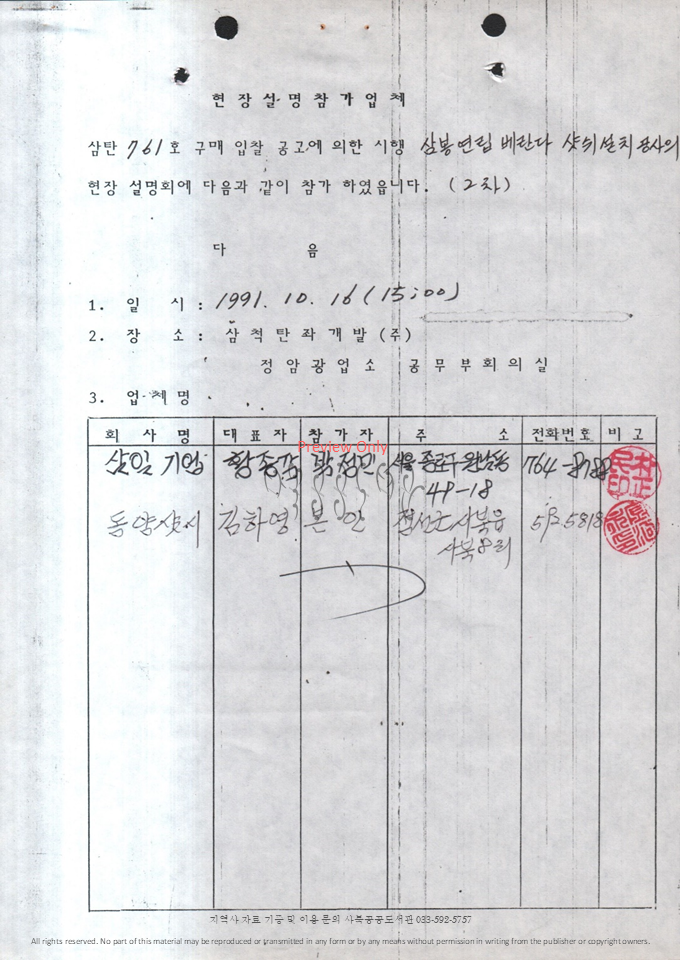 현장설명참가업체
삼탄 761호 구매 입찰 공고에 의한 시행 삼봉연립 베란다 샷쉬설치공사의
현장 설명회에 다음과 같이 참가 하였읍니다. (2차)
다 음
1. 일 시 : 1991. 10. 16 (15:00)
2. 장 소 : 삼척탄좌개발(주)
정암광업소 공무부회의실
3. 업체명
회사명 대표자 참가자 주소 전화번호 비고
Preview Only
삼일기업 박정민 서울 종로구 원남동 764-8788
49-18
동양샷시 김하영 본인 정선군 사북읍 592 5818
사북8리
지역사 자료 기증 및 이용 문의 사북공공도서관 033-592-5757
All rights reserved. No part of this material may be reproduced or transmitted in any form or by any means without permission in writing from the publisher or copyright owners.